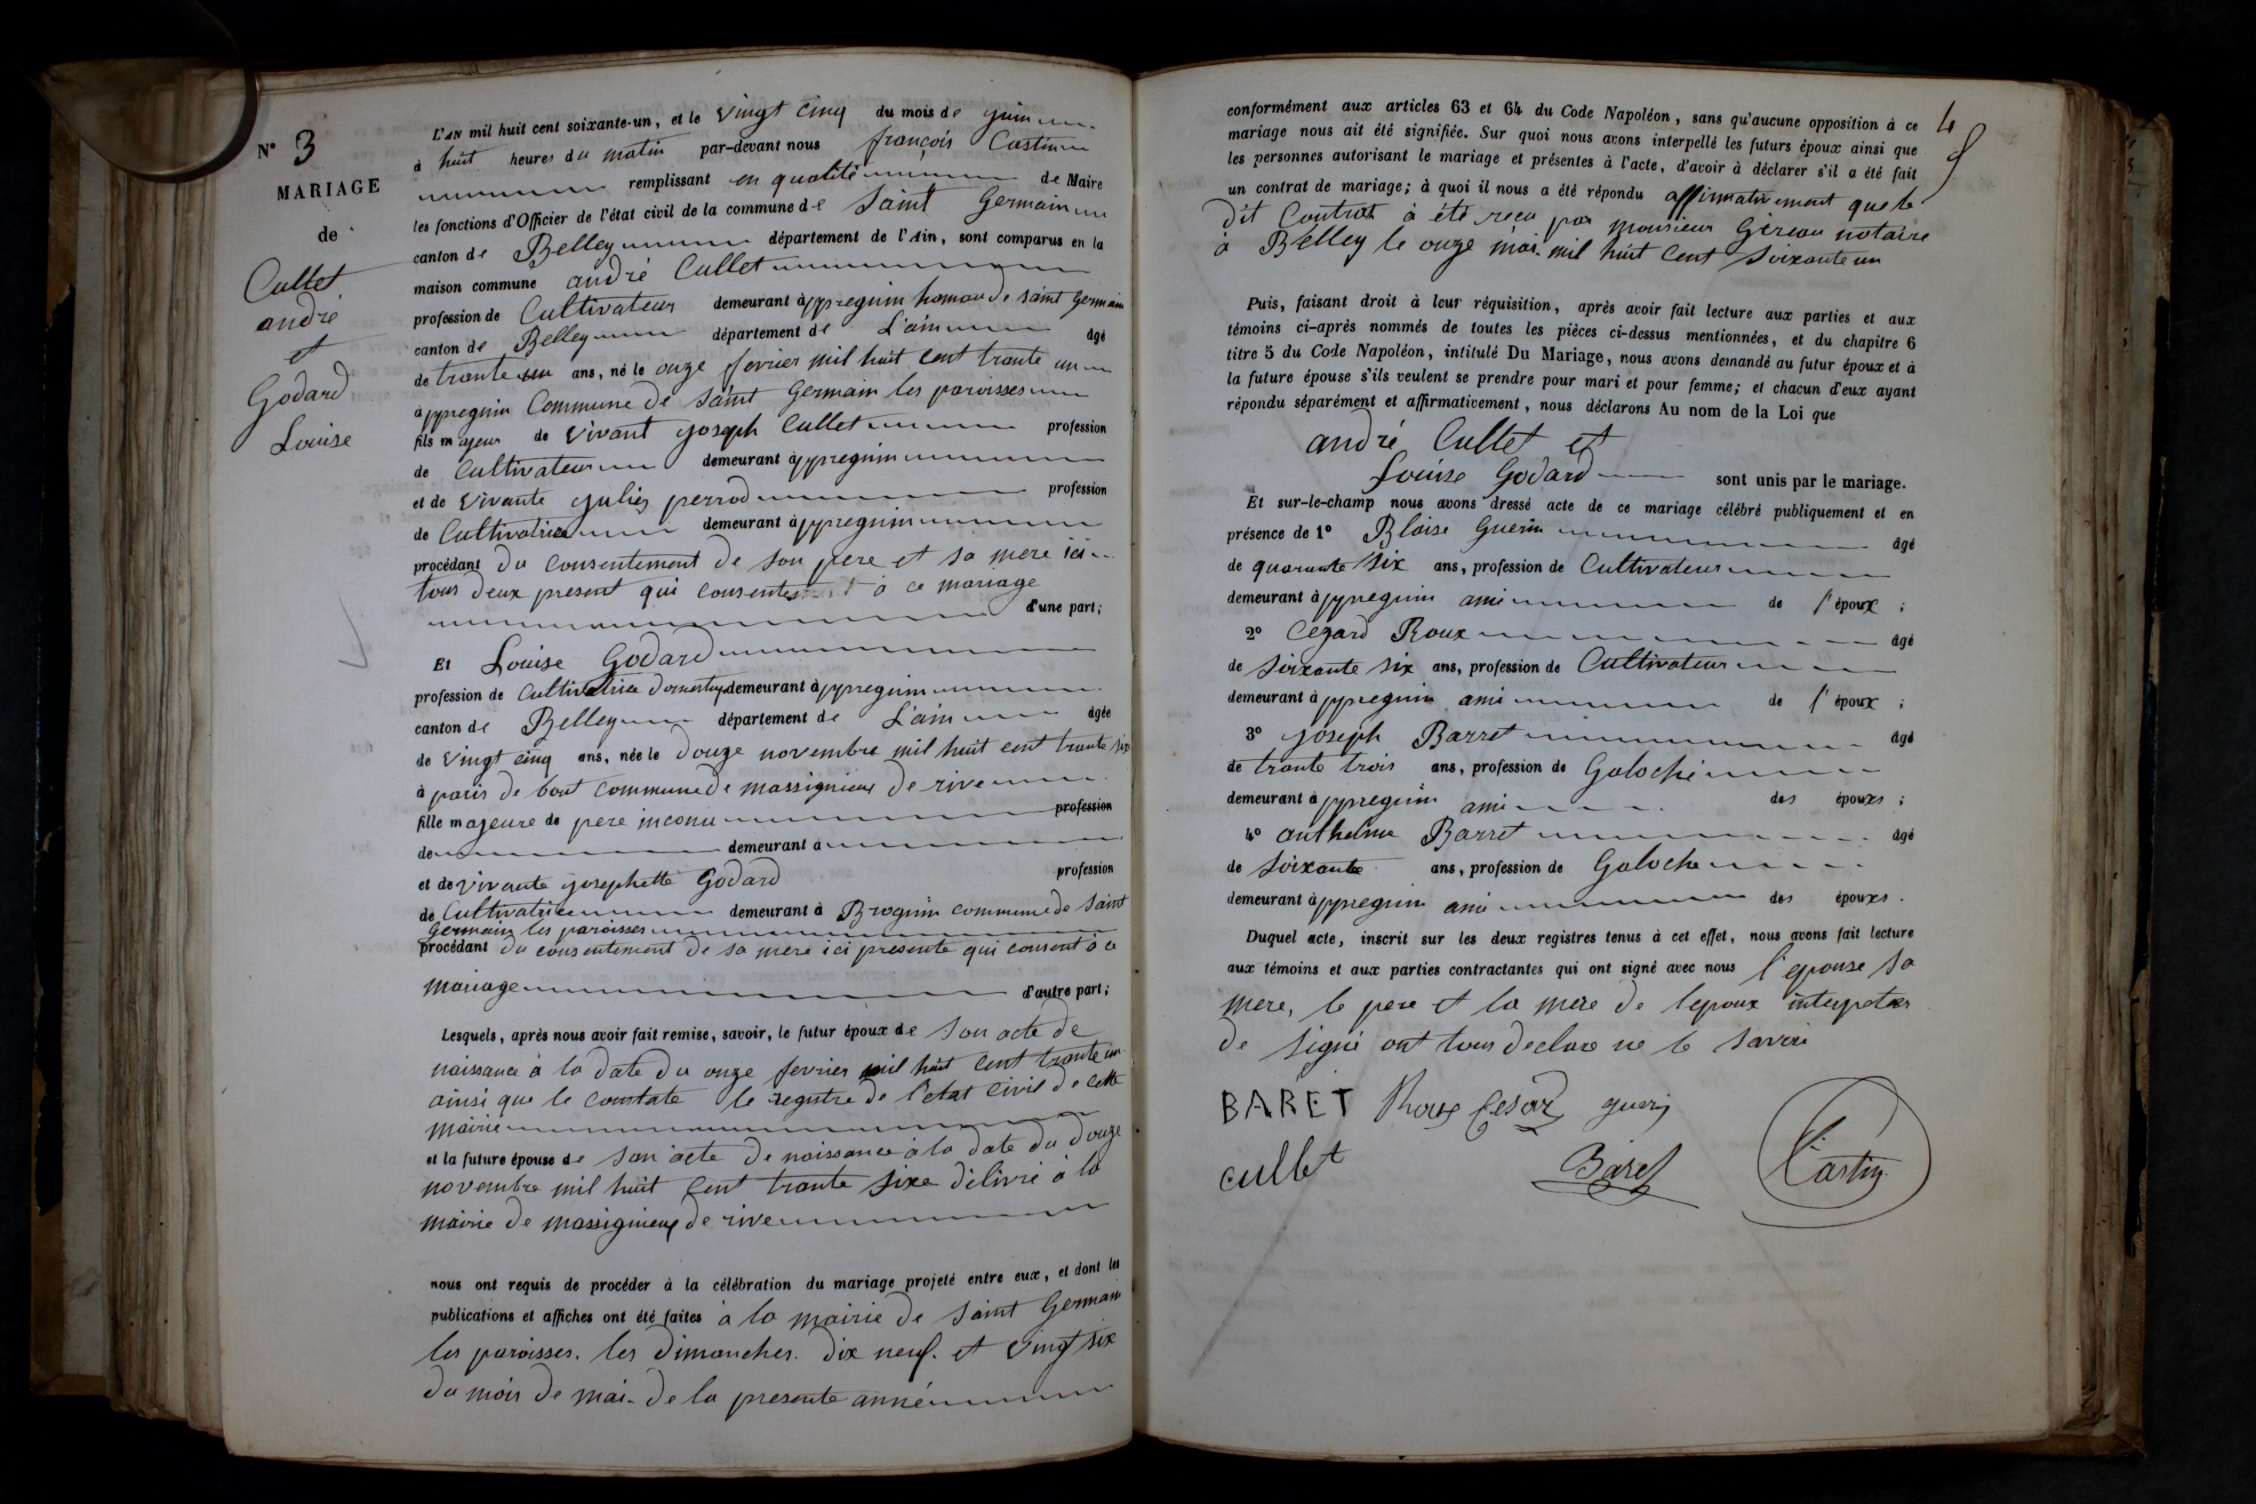 N° 3
MARIAGE
de
Cullet
andré
et
Godard
Louise
L'AN mil huit cent soixante-un, et le vingt cinq du mois de juin
à huit heures du matin par-devant nous françois Castin
remplissant en qualité de Maire
les fonctions d'Officier de l'état civil de la commune de Saint Germain
canton de Belley département de l'Ain, sont comparus en la
maison commune andré Cullet
profession de Cultivateur demeurant à appregnin hamau de Saint Germain
canton de Belley département de L'ain âgé
de trante ans, né le onze fevrier mil huit cent trante un
à appregnin Commune de Saint Germain les paroisses
fils majeur de vivant joseph Cullet profession
de Cultivateur demeurant à appregnin
et de vivante julies perrod profession
de Cultivatrice demeurant à appregnin
procédant du consentement de son pere et sa mere ici
tous deux present qui consentent à ce mariage
d'une part;
Et Louise Godard
profession de Cultivatrice demeurant à appregnin
canton de Belley département de L'ain âgée
de vingt cinq ans, née le douze novembre mil huit cent trante six
à paris de bout commune de massignieu de rive
fille majeure de pere inconu profession
de demeurant à
et de vivante josephette Godard profession
de Cultivatrice demeurant à Brognin commune de Saint
Germain les paroisses
procédant du consentement de sa mere ici presente qui consent à ce
mariage d'autre part;
Lesquels, après nous avoir fait remise, savoir, le futur époux de son acte de
naissance à la date du onze fevrier mil huit cent trante un
ainsi que le constate le registre de l'etat civil de cette
mairie
et la future épouse de son acte de naissance à la date du douze
novembre mil huit cent trante sixe délivré à la
mairie de massignieu de rive
nous ont requis de procéder à la célébration du mariage projeté entre eux, et dont les
publications et affiches ont été faites à la mairie de Saint Germain
les paroisses. les dimanches. dix neuf. et vingt six
du mois de mai. de la presente anné
4
conformément aux articles 63 et 64 du Code Napoléon, sans qu'aucune opposition à ce
mariage nous ait été signifiée. Sur quoi nous avons interpellé les futurs époux ainsi que
les personnes autorisant le mariage et présentes à l'acte, d'avoir à déclarer s'il a été fait
un contrat de mariage; à quoi il nous a été répondu affirmativement que le
dit Contrat à été reçu par monsieur Gireau notaire
à Belley le onze mai. mil huit cent soixante un
Puis, faisant droit à leur réquisition, après avoir fait lecture aux parties et aux
témoins ci-après nommés de toutes les pièces ci-dessus mentionnées, et du chapitre 6
titre 5 du Code Napoléon, intitulé Du Mariage, nous avons demandé au futur époux et à
la future épouse s'ils veulent se prendre pour mari et pour femme; et chacun d'eux ayant
répondu séparément et affirmativement, nous déclarons Au nom de la Loi que
andré Cullet et
Louise Godard sont unis par le mariage.
Et sur-le-champ nous avons dressé acte de ce mariage célébré publiquement et en
présence de 1° Blaise Guerin âgé
de quarante six ans, profession de Cultivateur
demeurant à appregnin ami de l'époux;
2° Cezard Roux âgé
de soixante six ans, profession de Cultivateur
demeurant à appregnin ami de l'époux;
3° joseph Barret âgé
de trante trois ans, profession de Galoché
demeurant à appregnin ami des époux;
4° anthelme Barret âgé
de soixante ans, profession de Galoche
demeurant à appregnin ami des époux.
Duquel acte, inscrit sur les deux registres tenus à cet effet, nous avons fait lecture
aux témoins et aux parties contractantes qui ont signé avec nous l'epouse sa
mere, le pere et la mere de lepoux
de signé ont tous declare ne le savoir
BARET Roux Cesar guerin
cullet Baret Castin